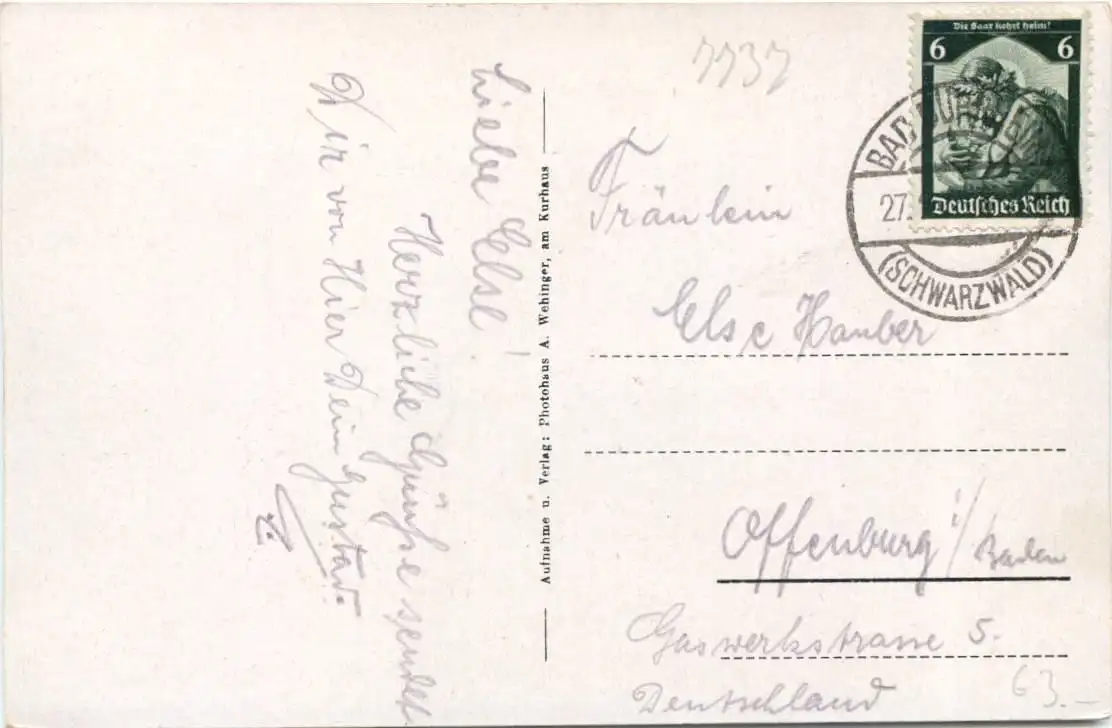 Liebe Else!
Herzliche Grüsse sendet
Dir von Hier Dein Gustav.
Aufnahme u. Verlag: Photohaus A. Wehinger, am Kurhaus
7737
Die Saar kehrt heim!
6 6
Deutsches Reich
BAD
27.
(SCHWARZWALD)
Fräulein
Else Hauber
Offenburg i/Baden
Gaswerkstrasse 5.
Deutschland
63.-